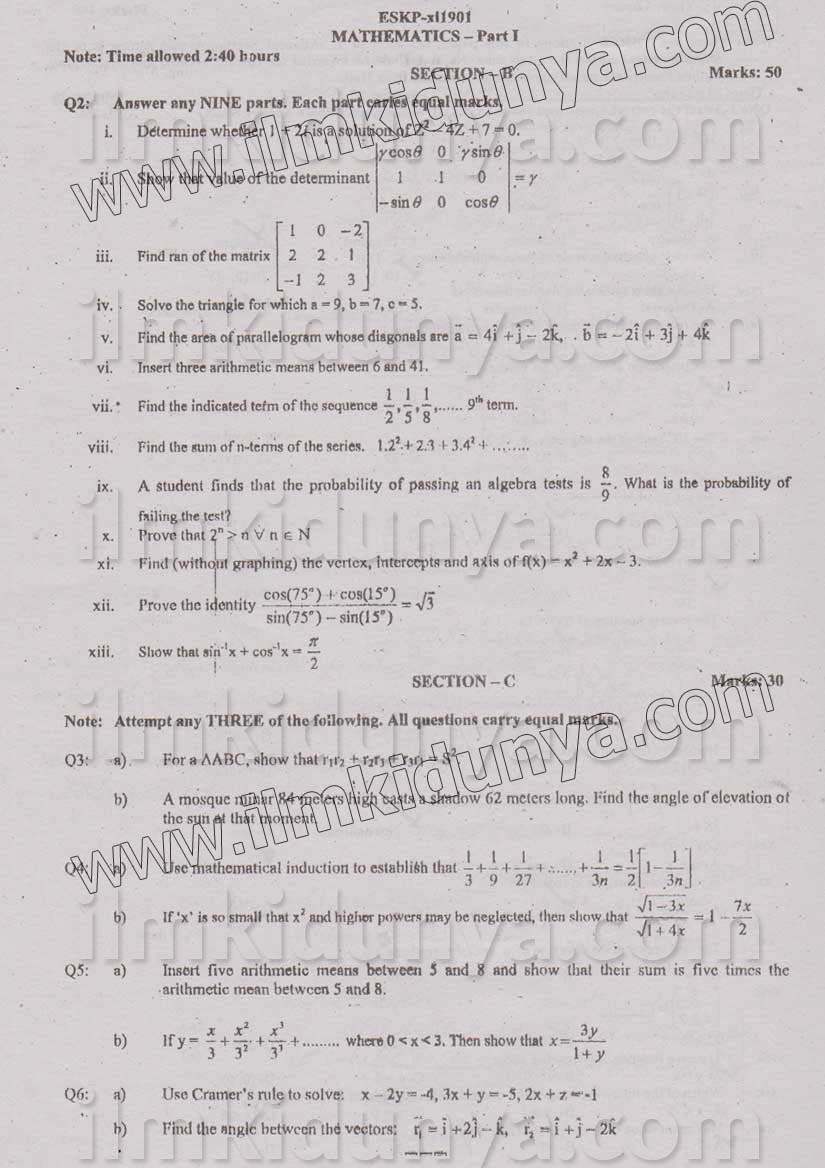 ESKP-xi1901
MATHEMATICS – Part I
Note: Time allowed 2:40 hours
SECTION – B Marks: 50
Q2: Answer any NINE parts. Each part carries equal marks.
i. Determine whether 1 + 2i is a solution of Z² – 4Z + 7 = 0.
ii. Show that value of the determinant |γcosθ 0 γsinθ; 1 1 0; –sinθ 0 cosθ| = γ
iii. Find ran of the matrix [1 0 –2; 2 2 1; –1 2 3]
iv. Solve the triangle for which a = 9, b = 7, c = 5.
v. Find the area of parallelogram whose diagonals are a⃗ = 4î + ĵ – 2k̂, b⃗ = – 2î + 3ĵ + 4k̂
vi. Insert three arithmetic means between 6 and 41.
vii. Find the indicated term of the sequence 1/2, 1/5, 1/8, ...... 9th term.
viii. Find the sum of n-terms of the series. 1.2² + 2.3 + 3.4² + .........
ix. A student finds that the probability of passing an algebra tests is 8/9. What is the probability of
failing the test?
x. Prove that 2ⁿ > n ∀ n ∈ N
xi. Find (without graphing) the vertex, intercepts and axis of f(x) = x² + 2x – 3.
xii. Prove the identity (cos(75°) + cos(15°))/(sin(75°) – sin(15°)) = √3
xiii. Show that sin⁻¹x + cos⁻¹x = π/2
SECTION – C Marks: 30
Note: Attempt any THREE of the following. All questions carry equal marks.
Q3: a) For a ΔABC, show that r₁r₂ + r₂r₃ + r₃r₁ = S².
b) A mosque minar 84 meters high casts a shadow 62 meters long. Find the angle of elevation of
the sun at that moment.
Q4: a) Use mathematical induction to establish that 1/3 + 1/9 + 1/27 + ......, + 1/3n = 1/2[1 – 1/3n].
b) If 'x' is so small that x² and higher powers may be neglected, then show that √(1 – 3x)/√(1 + 4x) = 1 – 7x/2
Q5: a) Insert five arithmetic means between 5 and 8 and show that their sum is five times the
arithmetic mean between 5 and 8.
b) If y = x/3 + x²/3² + x³/3³ + ......... where 0 < x < 3. Then show that x = 3y/(1 + y)
Q6: a) Use Cramer's rule to solve: x – 2y = -4, 3x + y = -5, 2x + z = -1
b) Find the angle between the vectors: r⃗₁ = î + 2ĵ – k̂, r⃗₂ = î + ĵ – 2k̂
www.ilmkidunya.com
www.ilmkidunya.com
ilmkidunya.com
ilmkidunya.com
ilmkidunya.com
ilmkidunya.com
ilmkidunya.com
ilmkidunya.com